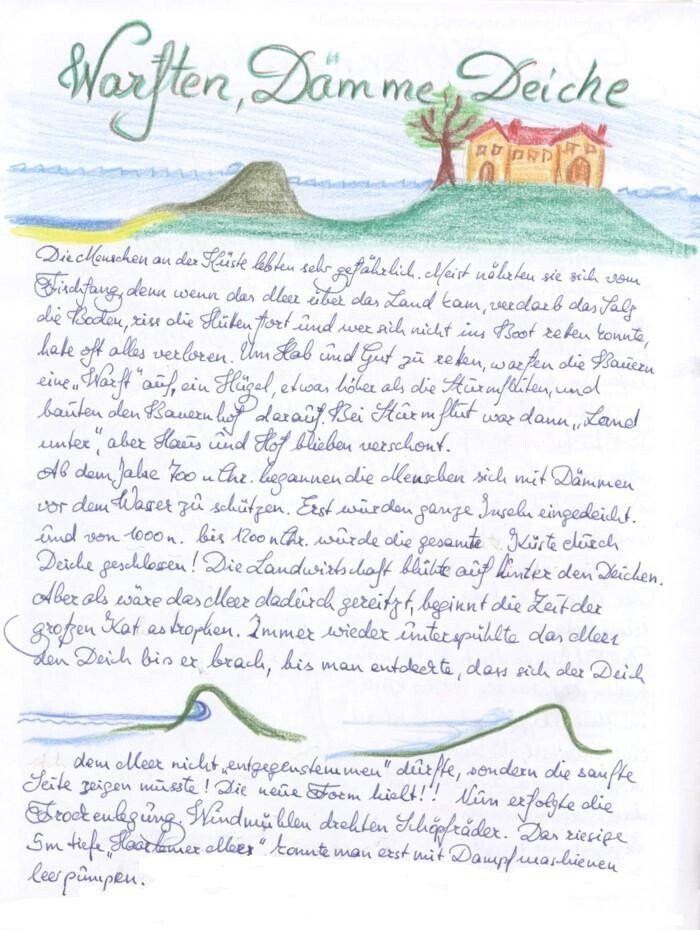 Warften, Dämme, Deiche
Die Menschen an der Küste lebten sehr gefährlich. Meist nährten sie sich vom
Fischfang, denn wenn das Meer über das Land kam, verdarb das Salz
die Boden, riss die Hüten fort und wer sich nicht ins Boot reten konnte,
hate oft alles verloren. Um Hab und Gut zu reten, warfen die Bauern
eine „Warft" auf, ein Hügel, etwas höher als die Sturmfluten, und
bauten den Bauernhof darauf. Bei Sturmflut war dann „Land
unter", aber Haus und Hof blieben verschont.
Ab dem Jahre 700 n Chr. begannen die Menschen sich mit Dämmen
vor dem Wasser zu schützen. Erst wurden ganze Inseln eingedeicht.
und von 1000 n. bis 1200 n Chr. wurde die gesamte Küste durch
Deiche geschlossen! Die Landwirtschaft blühte auf hinter den Deichen.
Aber als wäre das Meer dadurch gereitzt, beginnt die Zeit der
großen Katastrophen. Immer wieder unterspühlte das Meer
den Deich bis er brach, bis man entdeckte, dass sich der Deich
dem Meer nicht „entgegenstemmen" dürfte, sondern die sanfte
Seite zeigen musste! Die neue Form hielt!! Nun erfolgte die
Trockenlegung. Windmühlen drehten Schöpfräder. Das riesige
5m tiefe „Haarlemer Meer" konnte man erst mit Dampfmaschienen
leerpumpen.